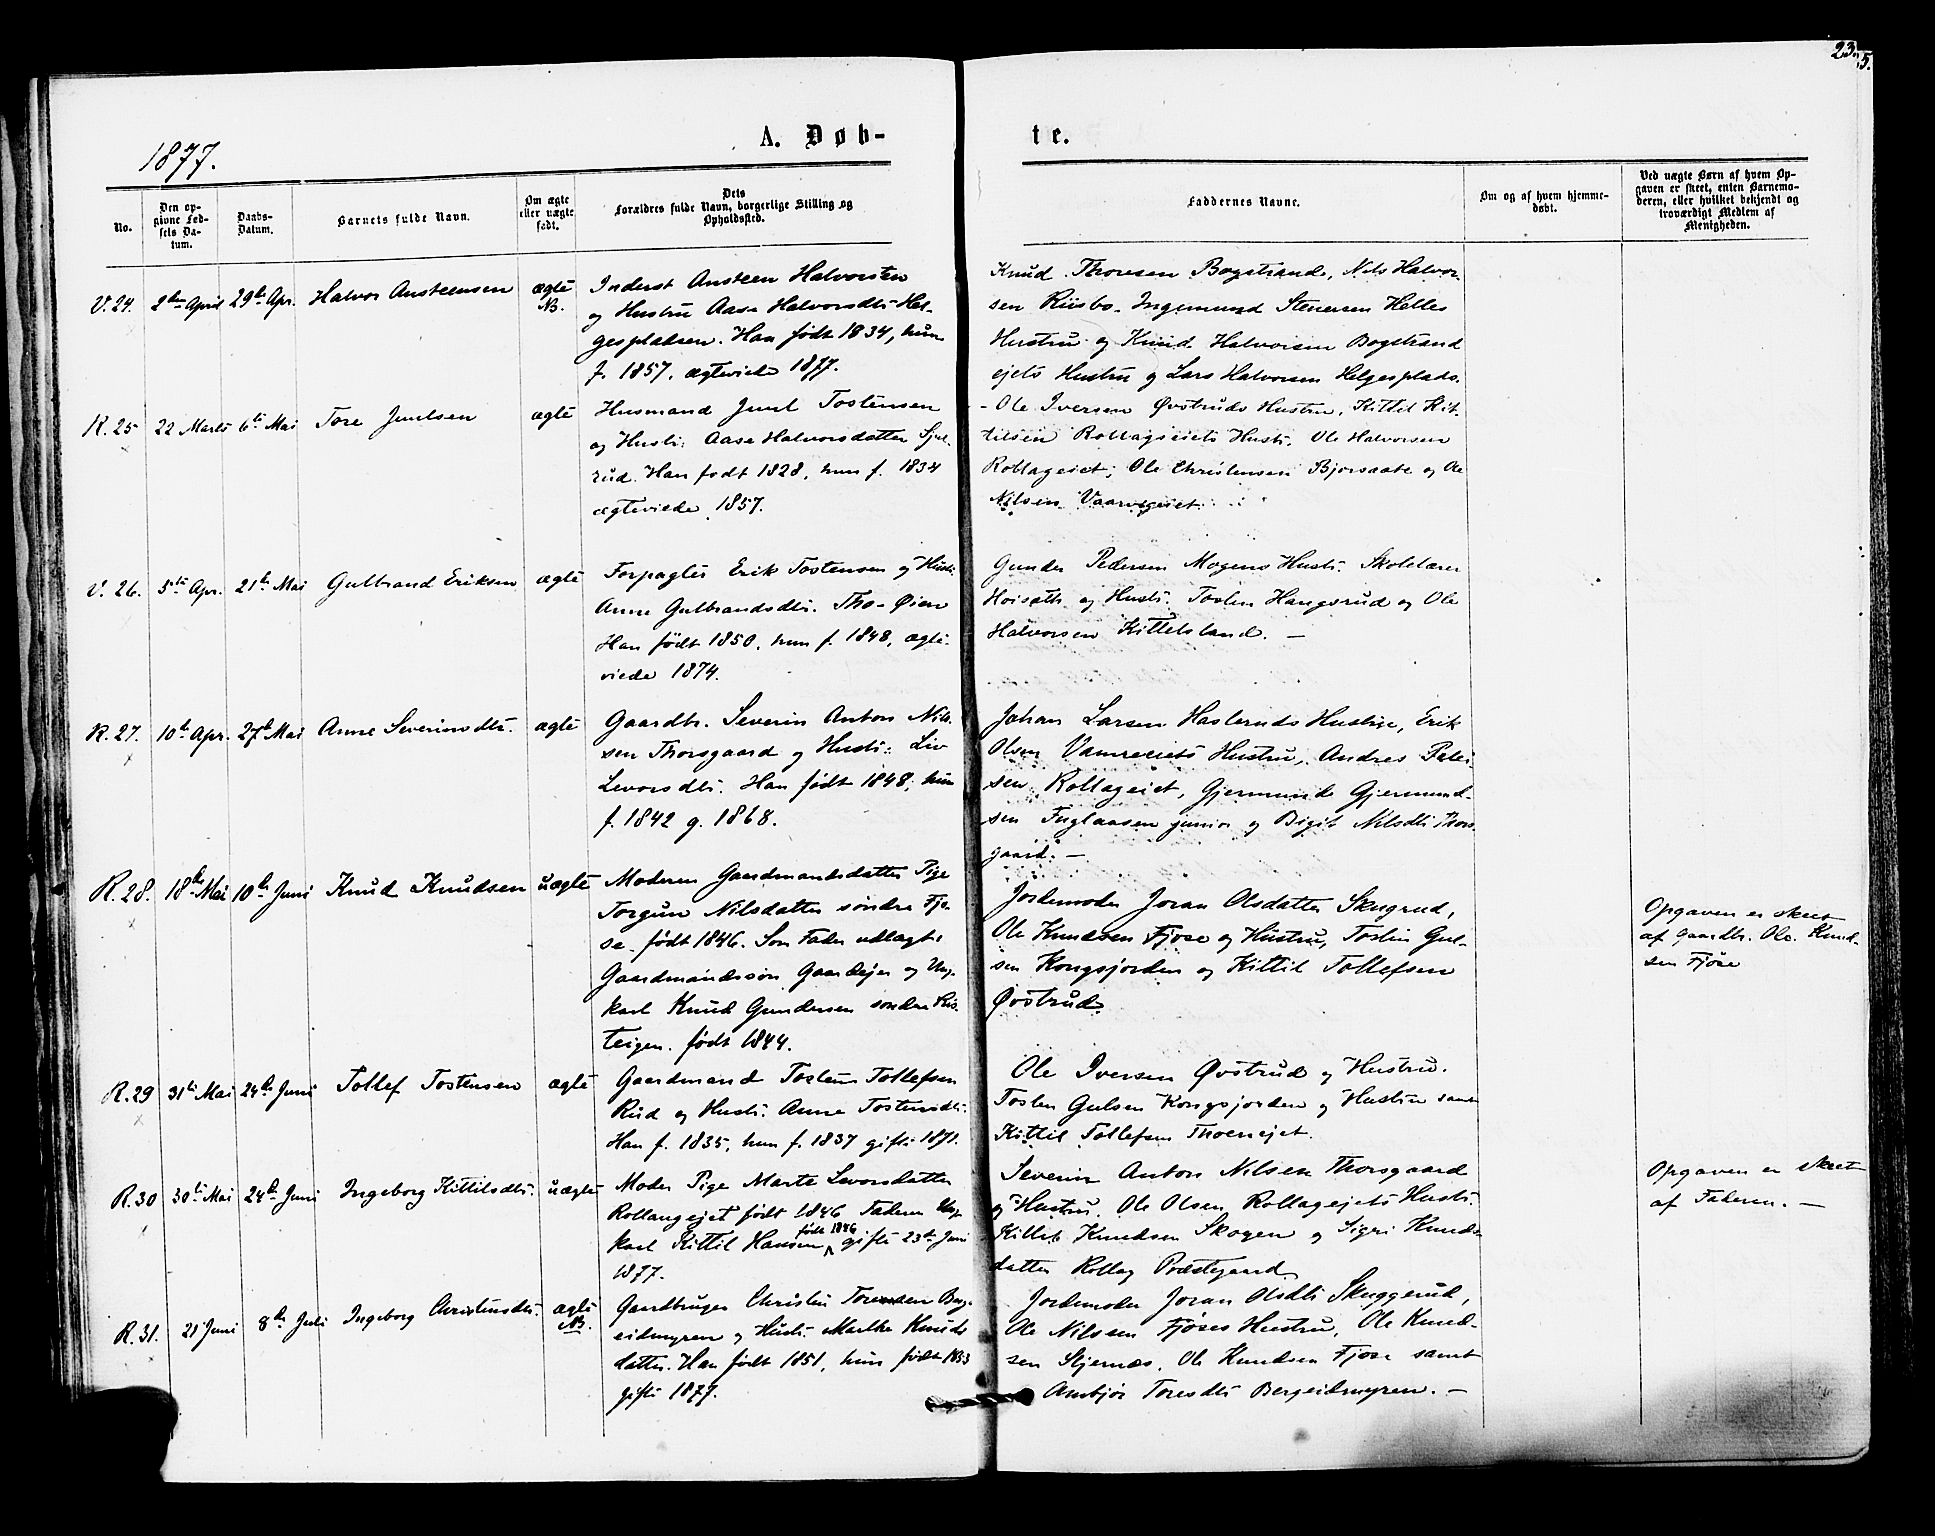 23.
5.
1877.
A. Døb-
te.
No.
Den op-
givne Fød-
sels Da-
tum.
Daabs-
Datum.
Barnets fulde Navn.
Om ægte
eller uægte
født.
Dets
Forældres fulde Navn, borgerlige Stilling og
Opholdssted.
Faddernes Navne.
Om og af hvem hjemme-
døbt.
Ved uægte Børn af hvem Op-
gaven er skeet, enten Barnemo-
deren, eller hvilket bekjendt og
troværdigt Medlem af
Menigheden.
V. 24. 2den April 29de Apr. Halvor Ansteensen ægte
NB.
Inderst Ansteen Halvorsen
og Hustru Aase Halvorsdtr. Hel-
gespladsen. Han født 1834, hun
f. 1857, ægteviede 1877.
Knud Thoresen Bogstrande, Nils Halvor-
sen Riisbo, Ingemund Stenersen Helles
Hustru og Knud Halvorsen Bogstrand
ejets Hustru og Lars Halvorsen Helgesplads.
R. 25 22 Marts 6te Mai Tore Juulsen ægte
Husmand Juul Tostensen
og Hustr. Aase Halvorsdatter
rud. Han født 1828, hun f. 1834
ægteviede 1857.
- Ole Iversen Øvstruds Hustru, Kittil Kit-
tilsen Rollagseiets Hustr. Ole Halvorsen
Rollageiet, Ole Christensen Bjørsaate og Ole
Nilsen Vaarvigeiet.
V. 26. 5te Apr. 21de Mai Gulbrand Eriksen ægte
Forpagter Erik Tostensen og Hustr.
Anne Gulbrandsdtr. Tho-Øien
Han født 1850, hun f. 1848, ægte-
viede 1874.
Gunder Pedersen Mogens Hustr. Skolelærer
Hoisæth og Hustr. Tosten Hangsrud og Ole
Halvorsen Kittelsland. -
R. 27. 10de Apr. 27de Mai Anne Severinsdtr. ægte
Gaardbr. Severin Anton Nils-
sen Thorsgaard og Hustr. Liv
Levorsdtr. Han født 1848, hun
f. 1842 g. 1868.
Johan Larsen Haslerunds Hustru, Erik
Olsen Hustru, Andres Peter-
sen Rollageiet, Gjermund Gjermund-
sen Fuglaasen junior og Birgit Nilsdtr. Thors-
gaard. -
R. 28. 18de Mai 10de Juni Knud Knudsen uægte
Moderen Gaardmandsdatter Pige
Torgun Nilsdatter søndre Fjo-
se, født 1846. Som Fader udlagt:
Gaardmandssøn Gaardejer og Ung-
karl Knud Gundersen søndre Ris-
teigen. født 1844.
Jordemoder Joran Olsdatter Skugrud,
Ole Knudsen Fjose og Hustru, Tosten Gul-
sen Kongsjorden og Kittil Tollefsen
Øvstrud.
Opgaven er skeet
af Gaardbr. Ole Knud-
sen Fjøse
R. 29 31te Mai 24de Juni Tollef Tostensen ægte
Gaardmand Tosten Tollefsen
Rud og Hustr. Anne Tostensdtr.
Han f. 1835, hun f. 1837 gifte 1871.
Ole Iversen Øvstrud og Hustru.
Tosten Gulsen Kongsjorden og Hustru samt
Kittil Tollefsen Thoenejet.
R. 30 30te Mai 24de Juni Ingeborg Kittilsdtr. uægte
Moder Pige Marte Levorsdatter
Rollangejet født 1846 Faderen Ung-
karl Kittil Hansen født 1846 gifte 23de Juni
1877.
Severin Anton Nilsen Thorsgaard
og Hustru, Ole Olsen Rollagejets Hustr.
Kittil Knudsen Skogen og Sigri Knuds-
datter Rollag Præstegaard.
Opgaven er skeet
af Faderen. -
R. 31. 21 Juni 8de Juli Ingeborg Christensdtr. ægte
NB.
Gaardbruger Christen Toresen Berg-
eidmyren og Hustr. Marthe Knuds-
datter. Han født 1851, hun født 1853
gifte 1877.
Jordemoder Joran Olsdtr. Skuggerud,
Ole Nilssen Fjøses Hustru, Ole Knud-
sen Stjernæs, Ole Knudsen Fjose samt
Ambjør Toresdtr. Bergeidmyren. -